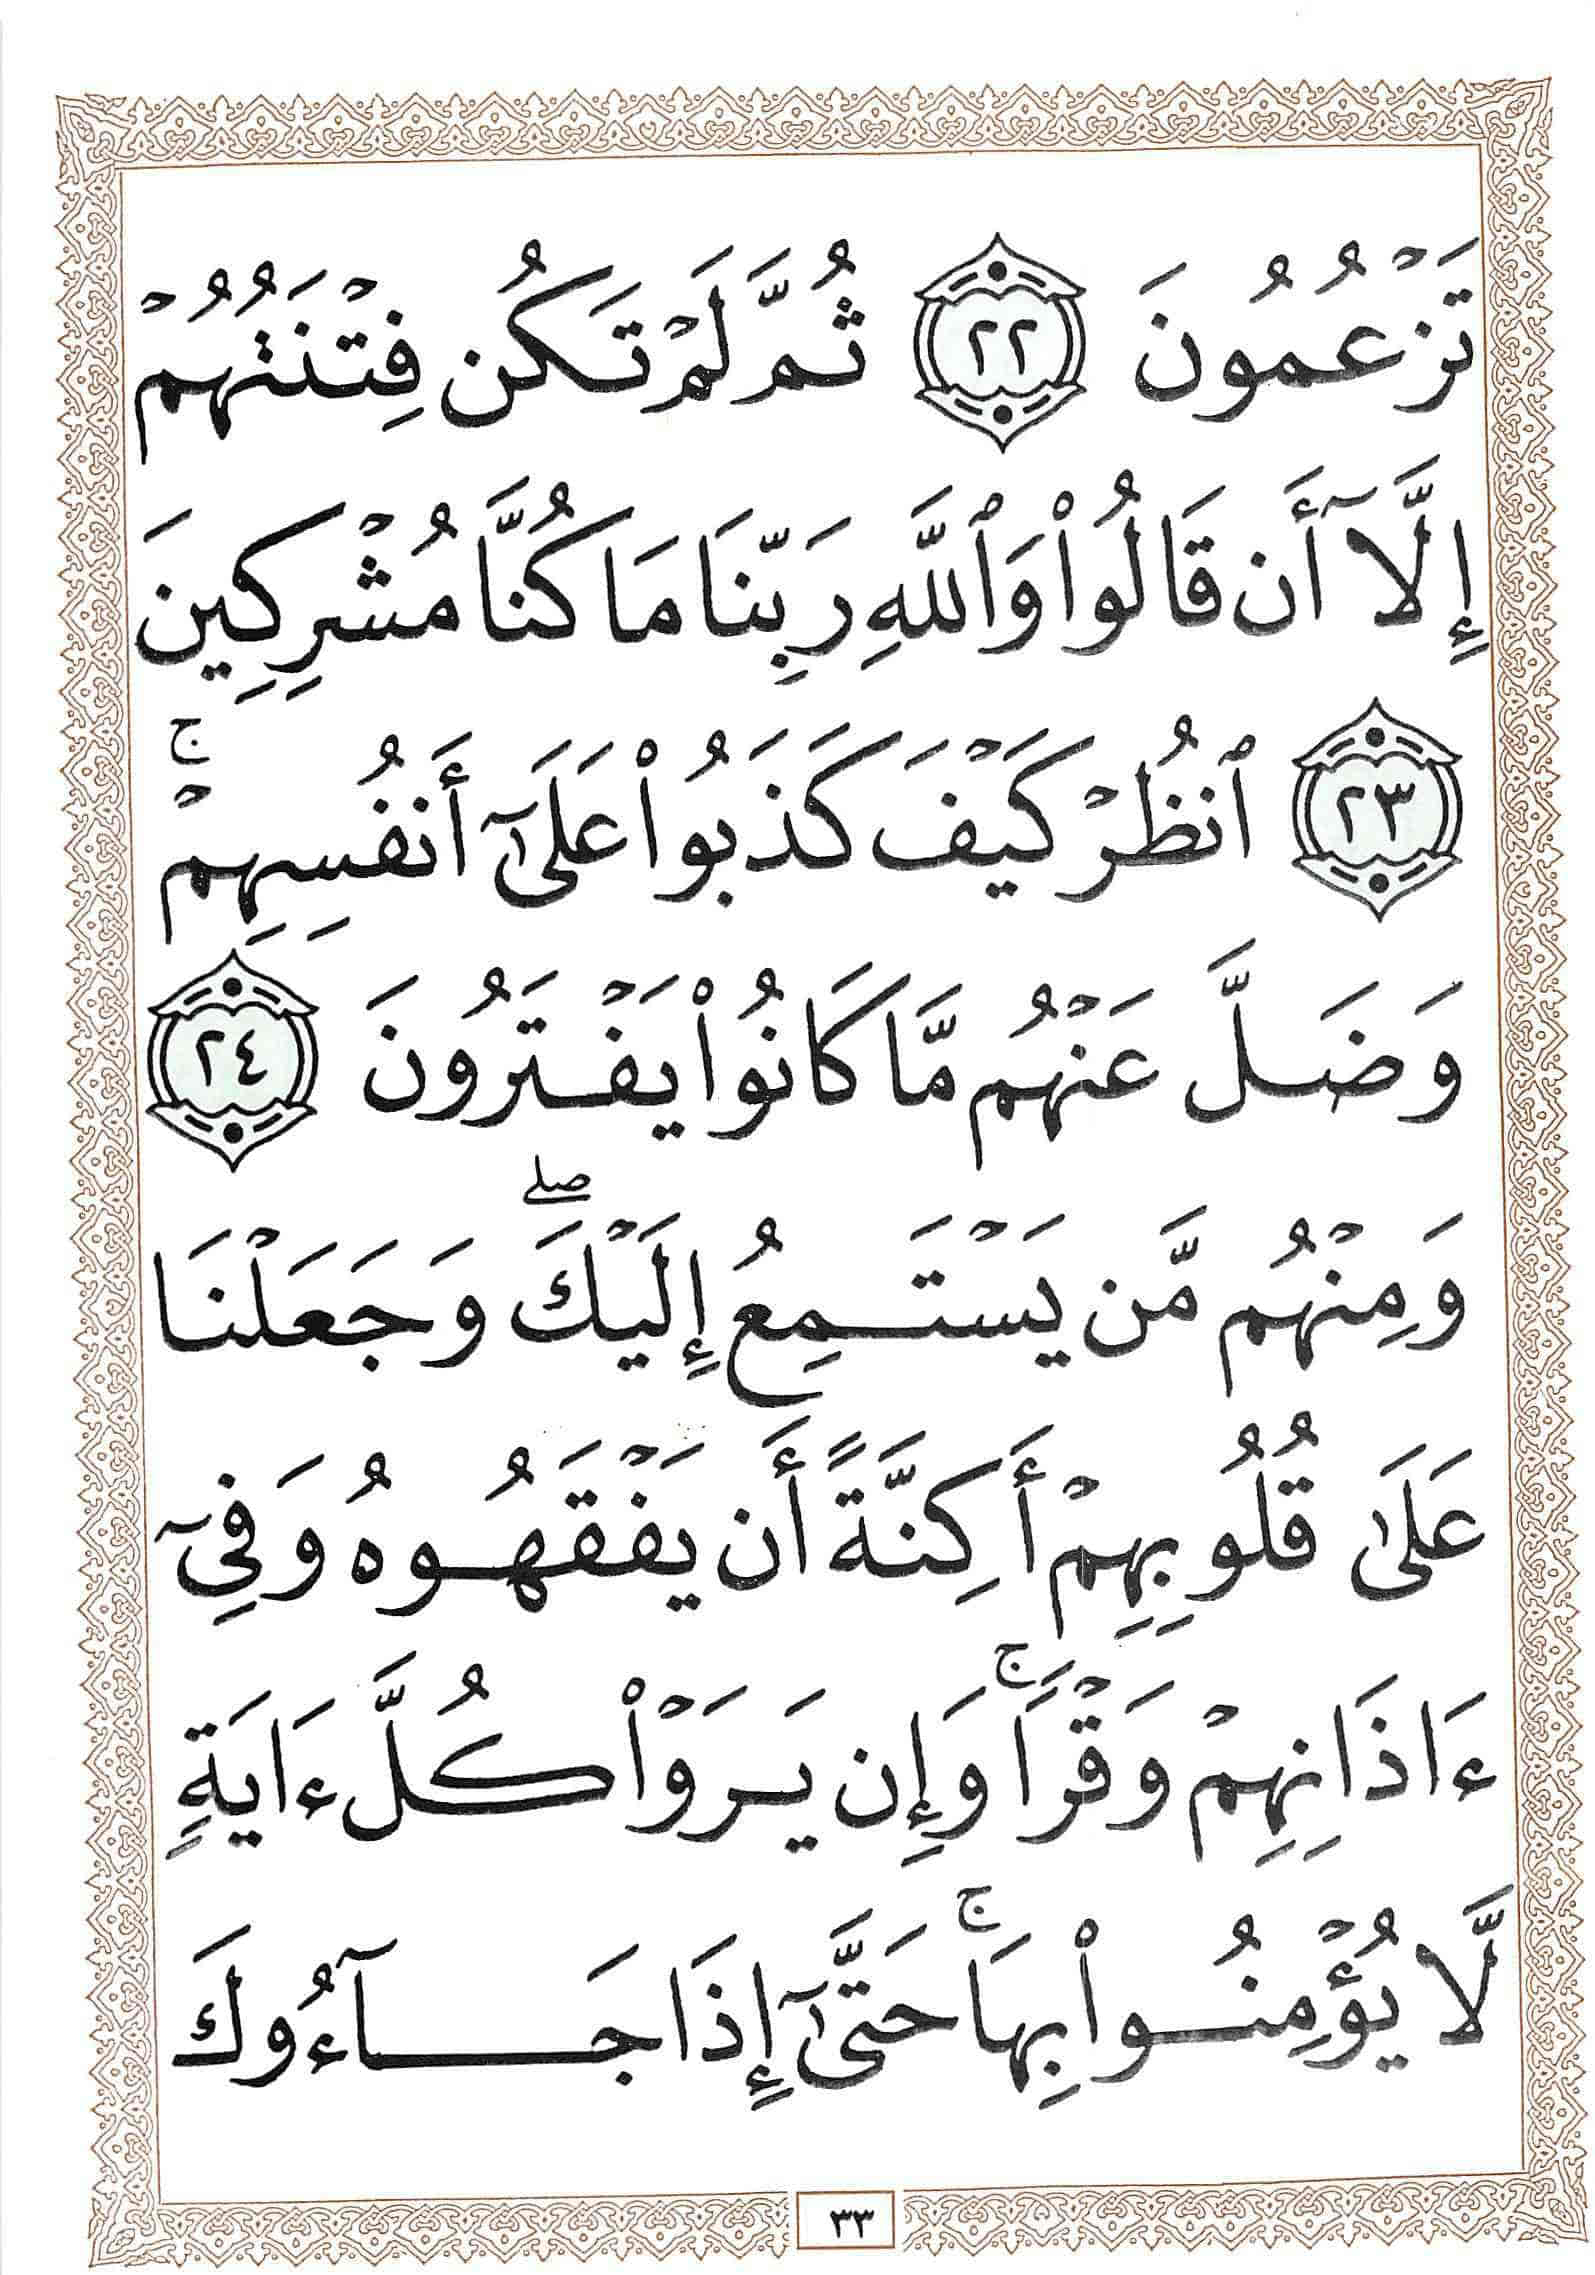 تَزۡعُمُونَ ٢٢ ثُمَّ لَمۡ تَكُن فِتۡنَتُهُمۡ
إِلَّآ أَن قَالُواْ وَٱللَّهِ رَبِّنَا مَا كُنَّا مُشۡرِكِينَ
٢٣ ٱنظُرۡ كَيۡفَ كَذَبُواْ عَلَىٰٓ أَنفُسِهِمۡۚ
وَضَلَّ عَنۡهُم مَّا كَانُواْ يَفۡتَرُونَ ٢٤
وَمِنۡهُم مَّن يَسۡتَمِعُ إِلَيۡكَۖ وَجَعَلۡنَا
عَلَىٰ قُلُوبِهِمۡ أَكِنَّةً أَن يَفۡقَهُوهُ وَفِيٓ
ءَاذَانِهِمۡ وَقۡرٗاۚ وَإِن يَرَوۡاْ كُلَّ ءَايَةٖ
لَّا يُؤۡمِنُواْ بِهَاۚ حَتَّىٰٓ إِذَا جَآءُوكَ
٣٣